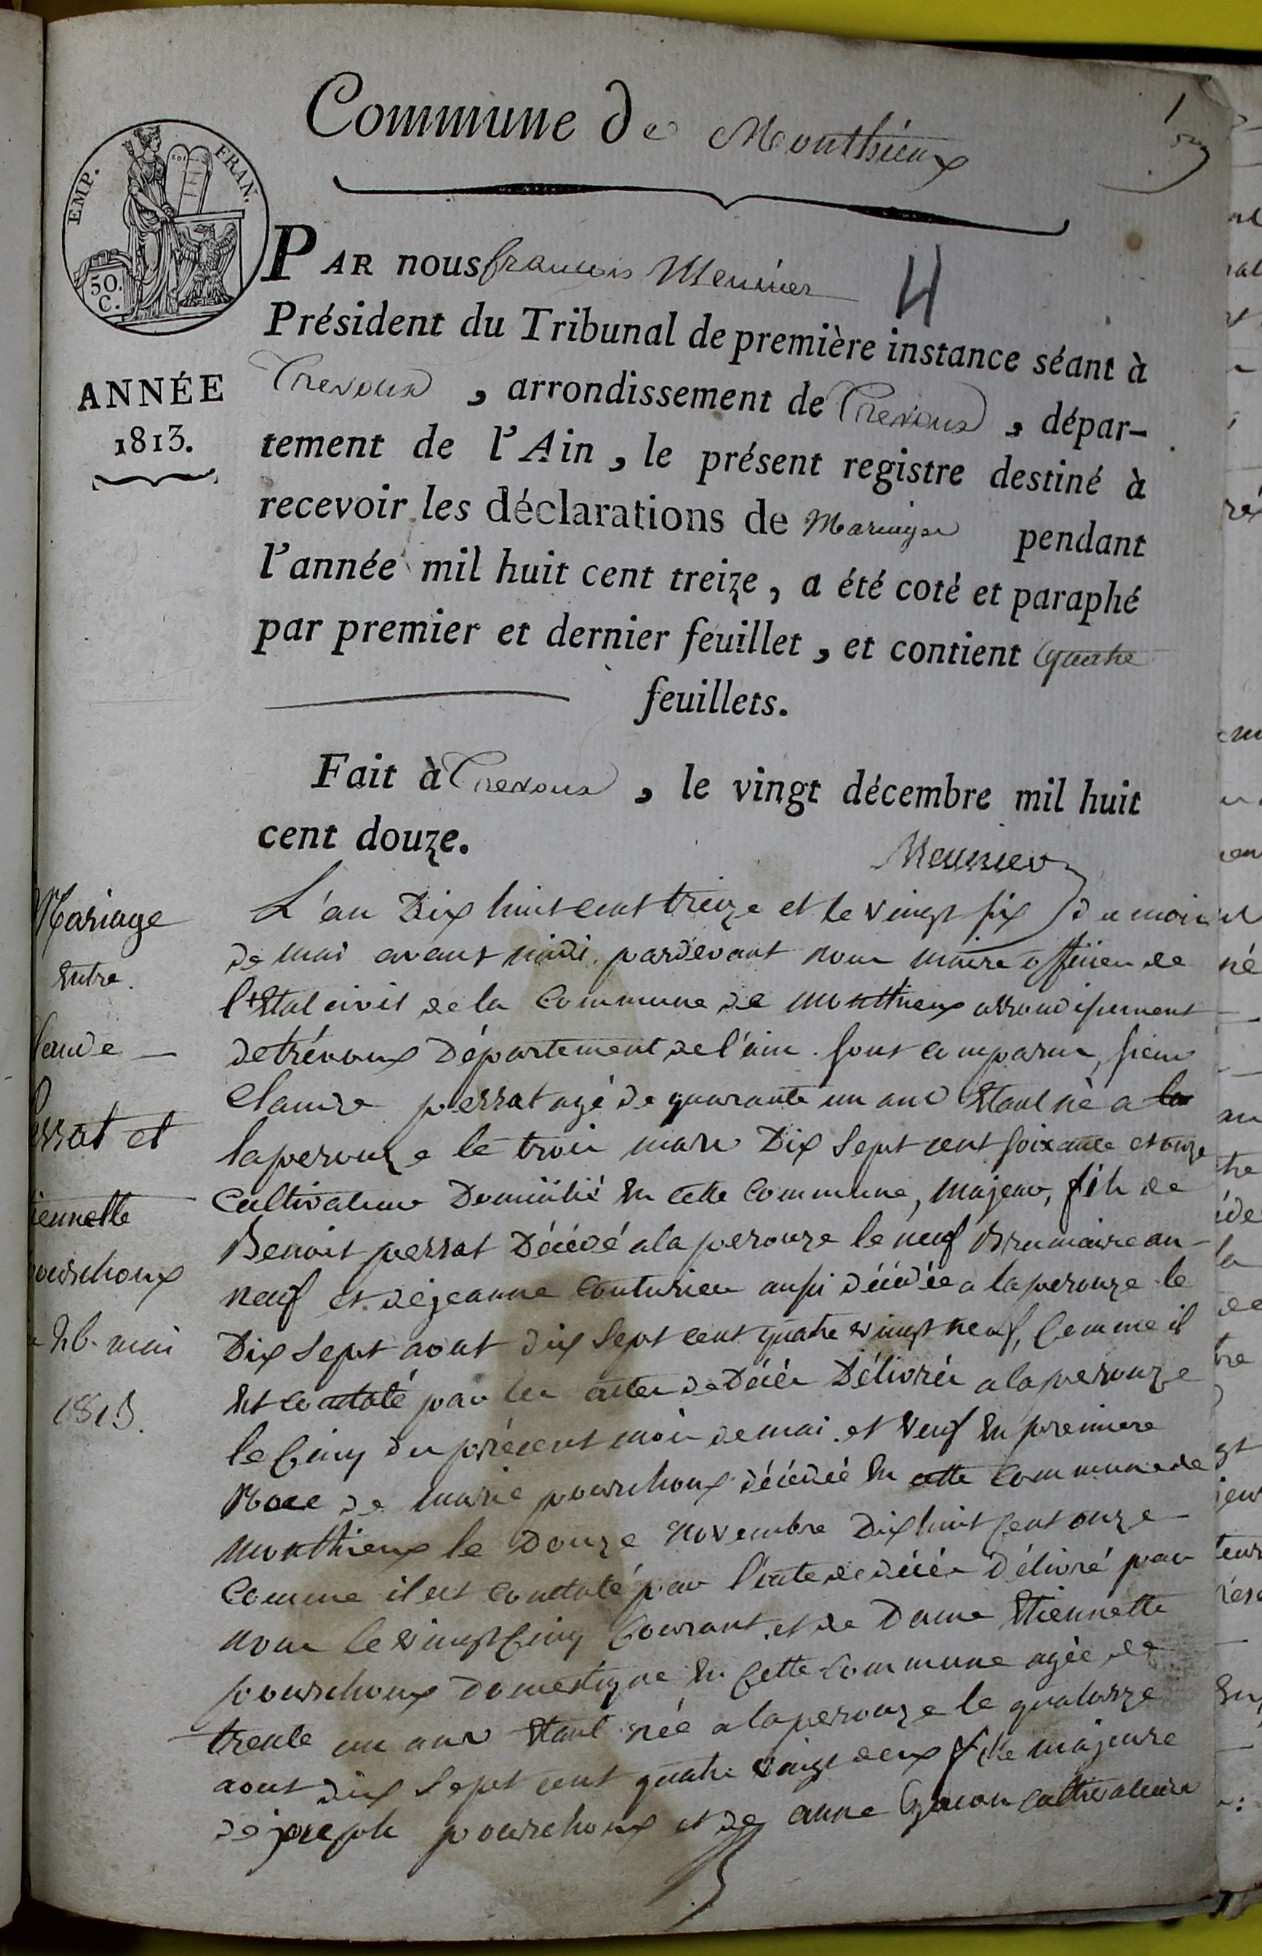 Commune de Monthieux
1
EMP. FRAN.
50.
C.
PAR nous francois Meunier
4
Président du Tribunal de première instance séant à
Trevoux, arrondissement de Trevoux, dépar-
ANNÉE
1813.
tement de l'Ain, le présent registre destiné à
recevoir les déclarations de Mariage pendant
l'année mil huit cent treize, a été coté et paraphé
par premier et dernier feuillet, et contient quatre
feuillets.
Fait à Trevoux, le vingt décembre mil huit
cent douze.
Meunier
Mariage
Entre.
laude
errat et
iennette
ourchoux
26. mai
1813.
L'an Dix huit cent treize et le vingt six du mois
de mai avant midi pardevant nous maire officier de
l'Etat civil de la Commune de monthieux arrondissement
de trévoux Département de l'ain. sont comparu, sieur
Claude perrat agé de quarante un ans Etant né a la
laperouze le trois mars Dix Sept cent soixante et onze
Cultivateur Domicilié En cette Commune, majeur, fils de
Benoit perrat Décédé a la perouze le neuf Brumaire an
neuf et de jeanne Couturier aussi décédée a la perouze le
Dix sept aout dix sept cent quatre vingt neuf, Comme il
Est constaté par les actes de Décès Délivrés a la perouze
le Cinq du présent mois de mai. et veuf En premiere
Noce de marie pourchoux décédée En cette Commune de
Monthieux le Douze Novembre Dix huit Cent onze
Comme il est constaté par l'acte de décès Délivré par
nous le vingt Cinq Courant. et de Dame Etiennette
pourchoux Domestique En Cette Commune agée de
trente un ans Etant née a la perouze le quatorze
aout dix Sept cent quatre vingt deux fille majeure
de joseph pourchoux et de anne Gacon cultivateurs